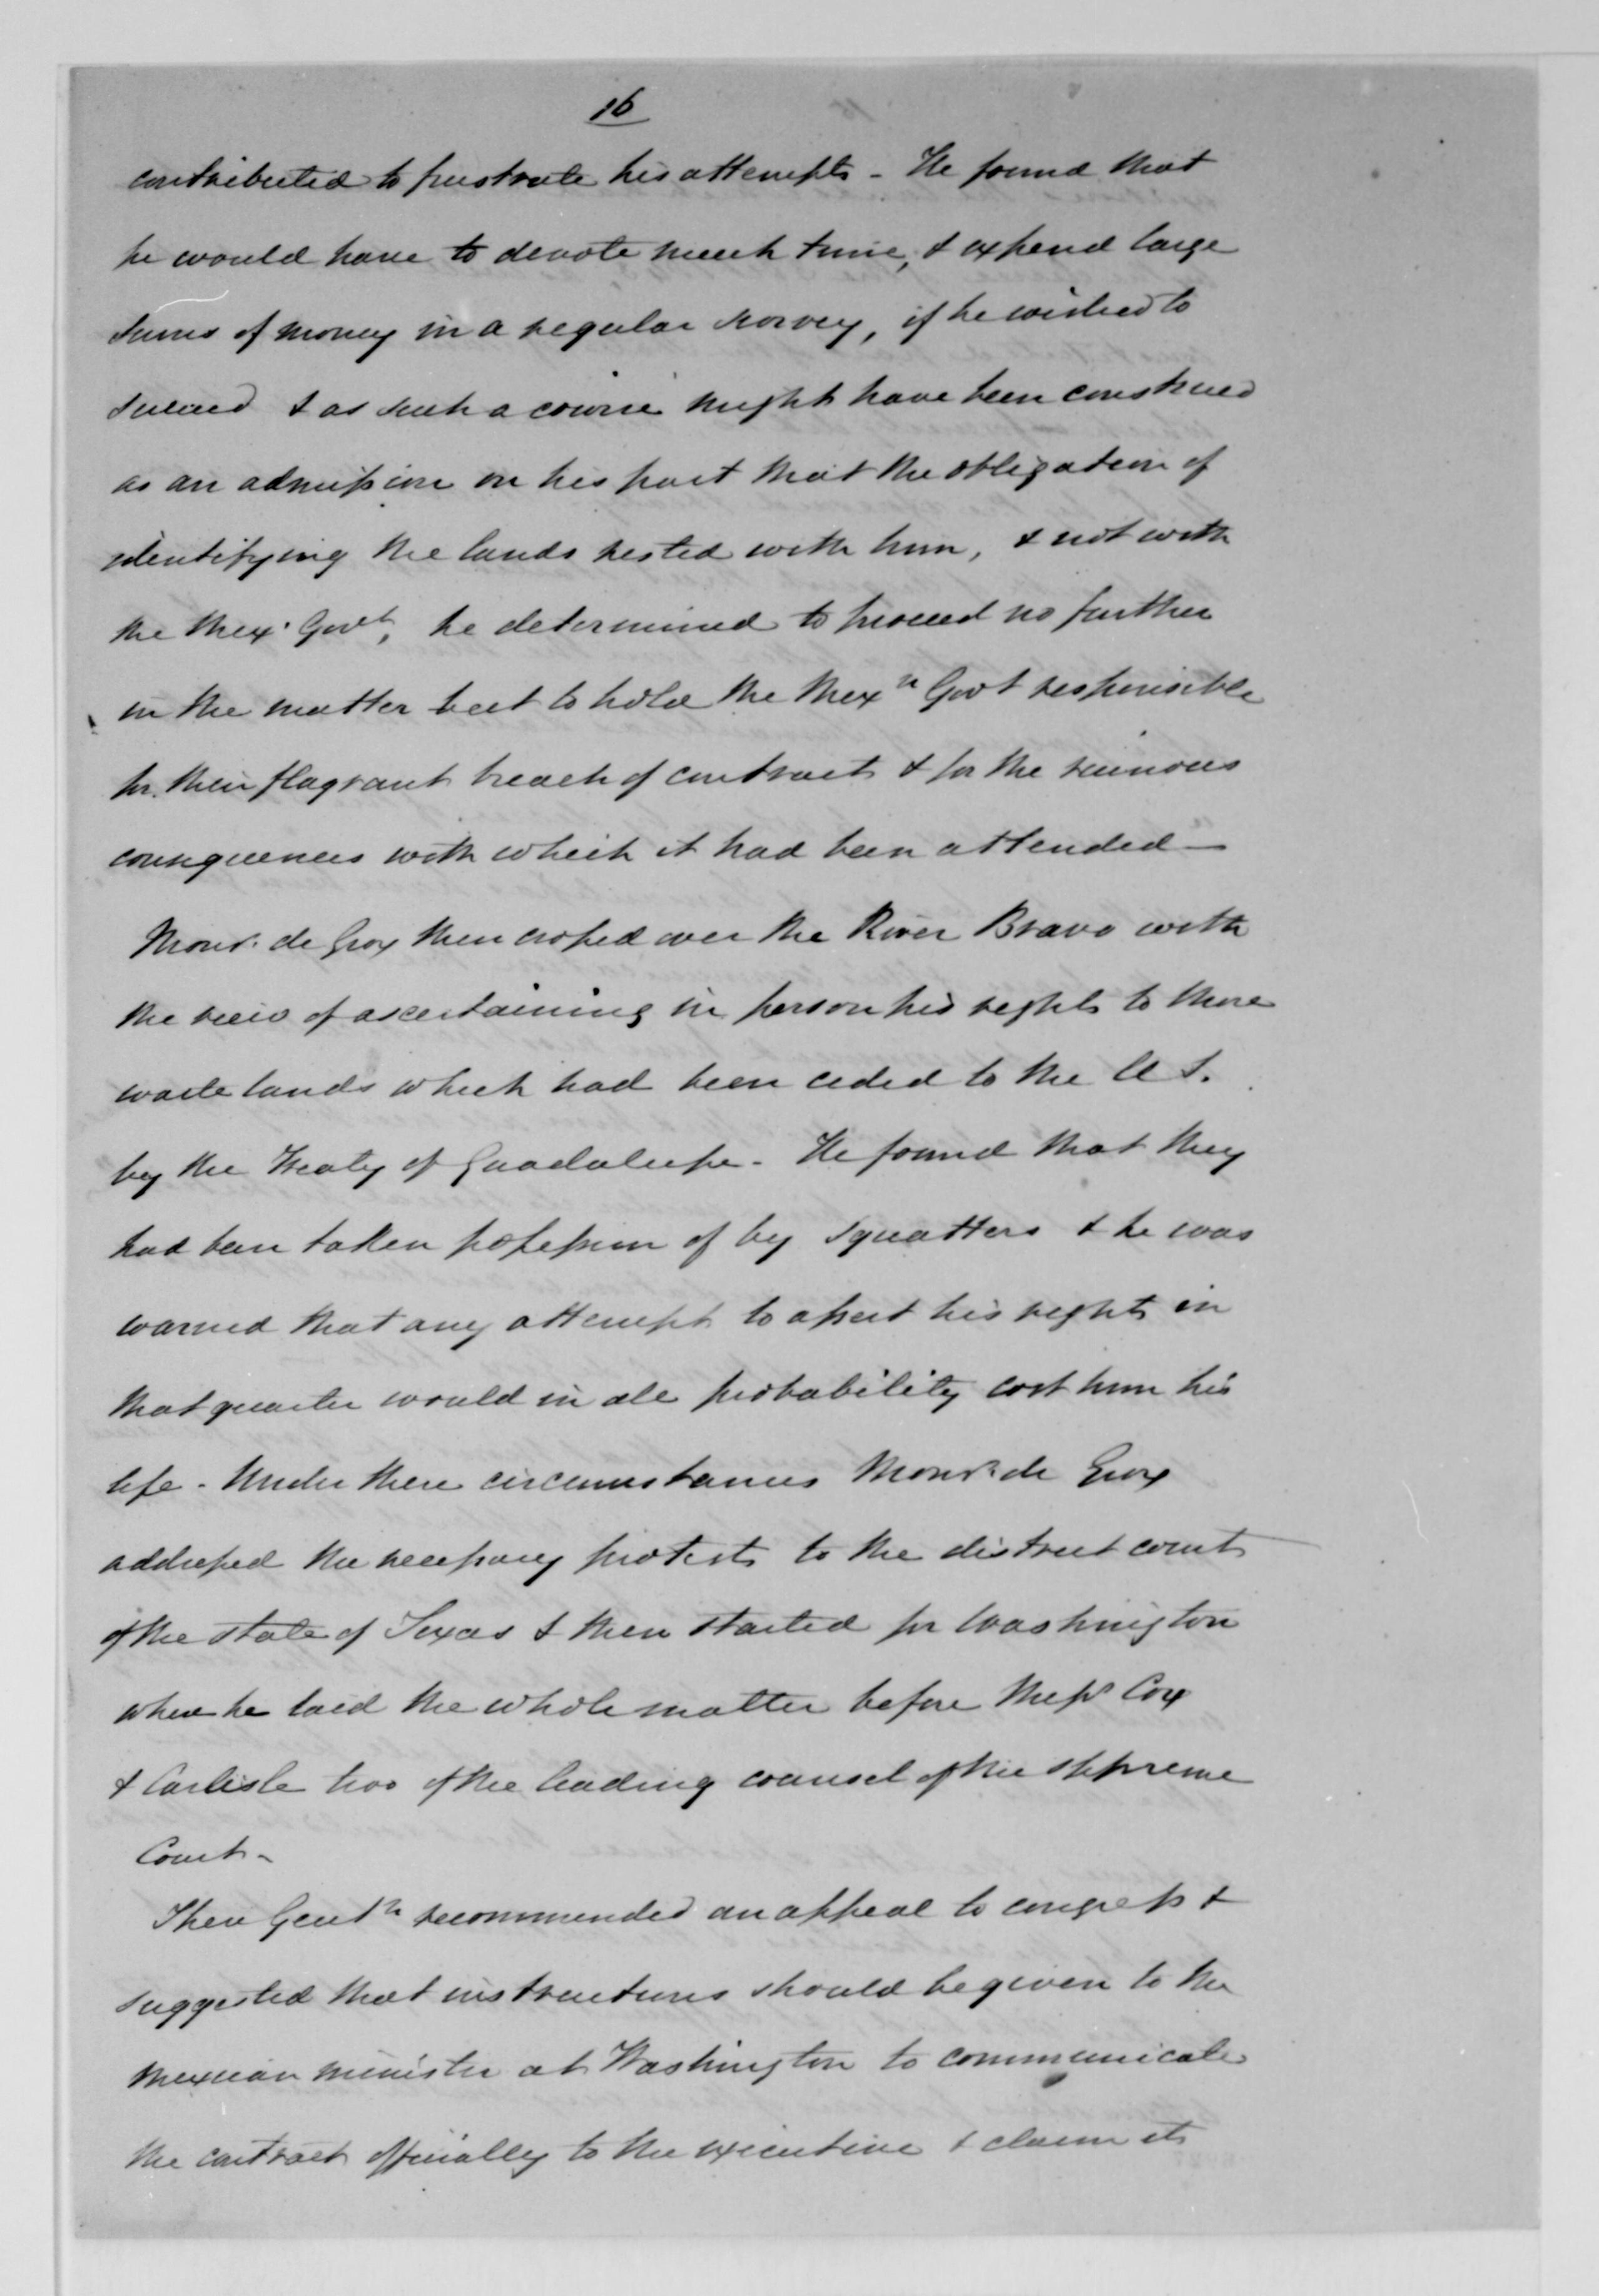 16
contributed to frustrate his attempts - He found that
he would have to devote much time, & expend large
sums of money in a regular survey, if he wished to
succeed & as such a course might have been construed
as an admission on his part that the obligation of
identifying the lands rested with him, & not with
the Mex. Govt, he determined to proceed no further
in the matter but to hold the Mexn Govt responsible
for their flagrant breach of contract & for the ruinous
consequences with which it had been attended -
Monsr. de Grox then crossed over the River Bravo with
the view of ascertaining in person his rights to those
waste lands which had been ceded to the U S.
by the Treaty of Guadalupe - He found that they
had been taken possession of by squatters & he was
warned that any attempt to assert his rights in
that quarter would in all probability cost him his
life - Under these circumstances Monsr. de Grox
addressed the necessary protests to the district court
of the state of Texas & then started for Washington
where he laid the whole matter before Messrs Cox
& Carlisle two of the leading counsel of the Supreme
Court -
These Gentn recommended an appeal to congress &
suggested that instructions should be given to the
Mexican minister at Washington to communicate
the contract officially to the executive & claim its